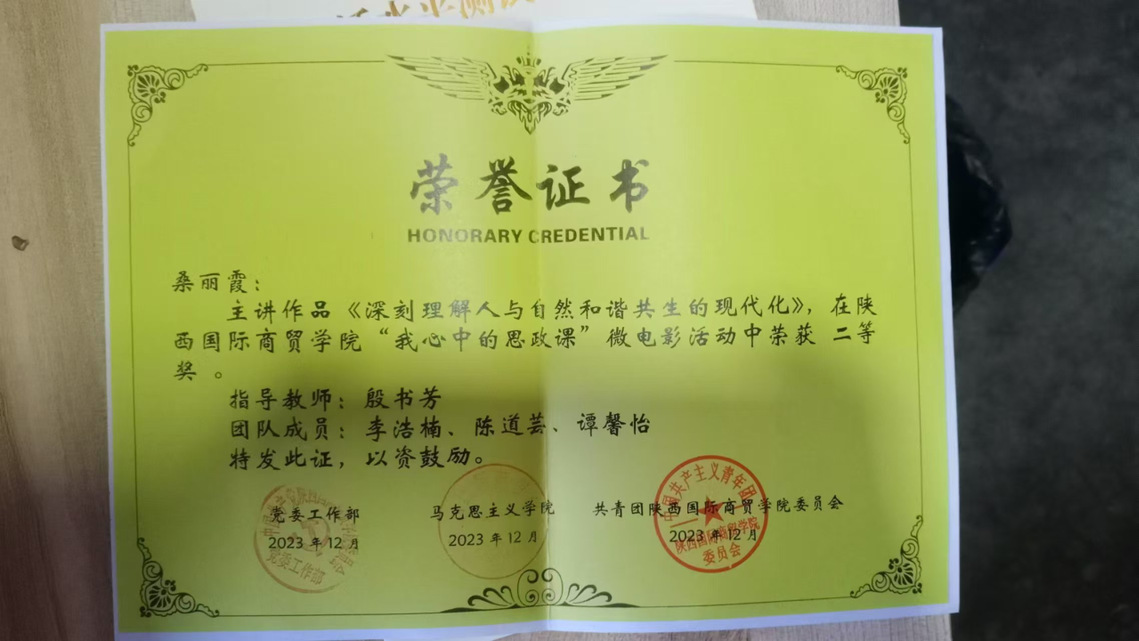 荣誉证书
HONORARY CREDENTIAL
桑丽霞：
主讲作品《深刻理解人与自然和谐共生的现代化》，在陕
西国际商贸学院“我心中的思政课”微电影活动中荣获 二等
奖 。
指导教师：殷书芳
团队成员：李浩楠、陈道芸、谭馨怡
特发此证，以资鼓励。
党委工作部 马克思主义学院 共青团陕西国际商贸学院委员会
2023 年 12 月 2023 年 12 月 2023 年 12 月
党委工作部
中国共产主义青年团
陕西国际商贸学院
委员会